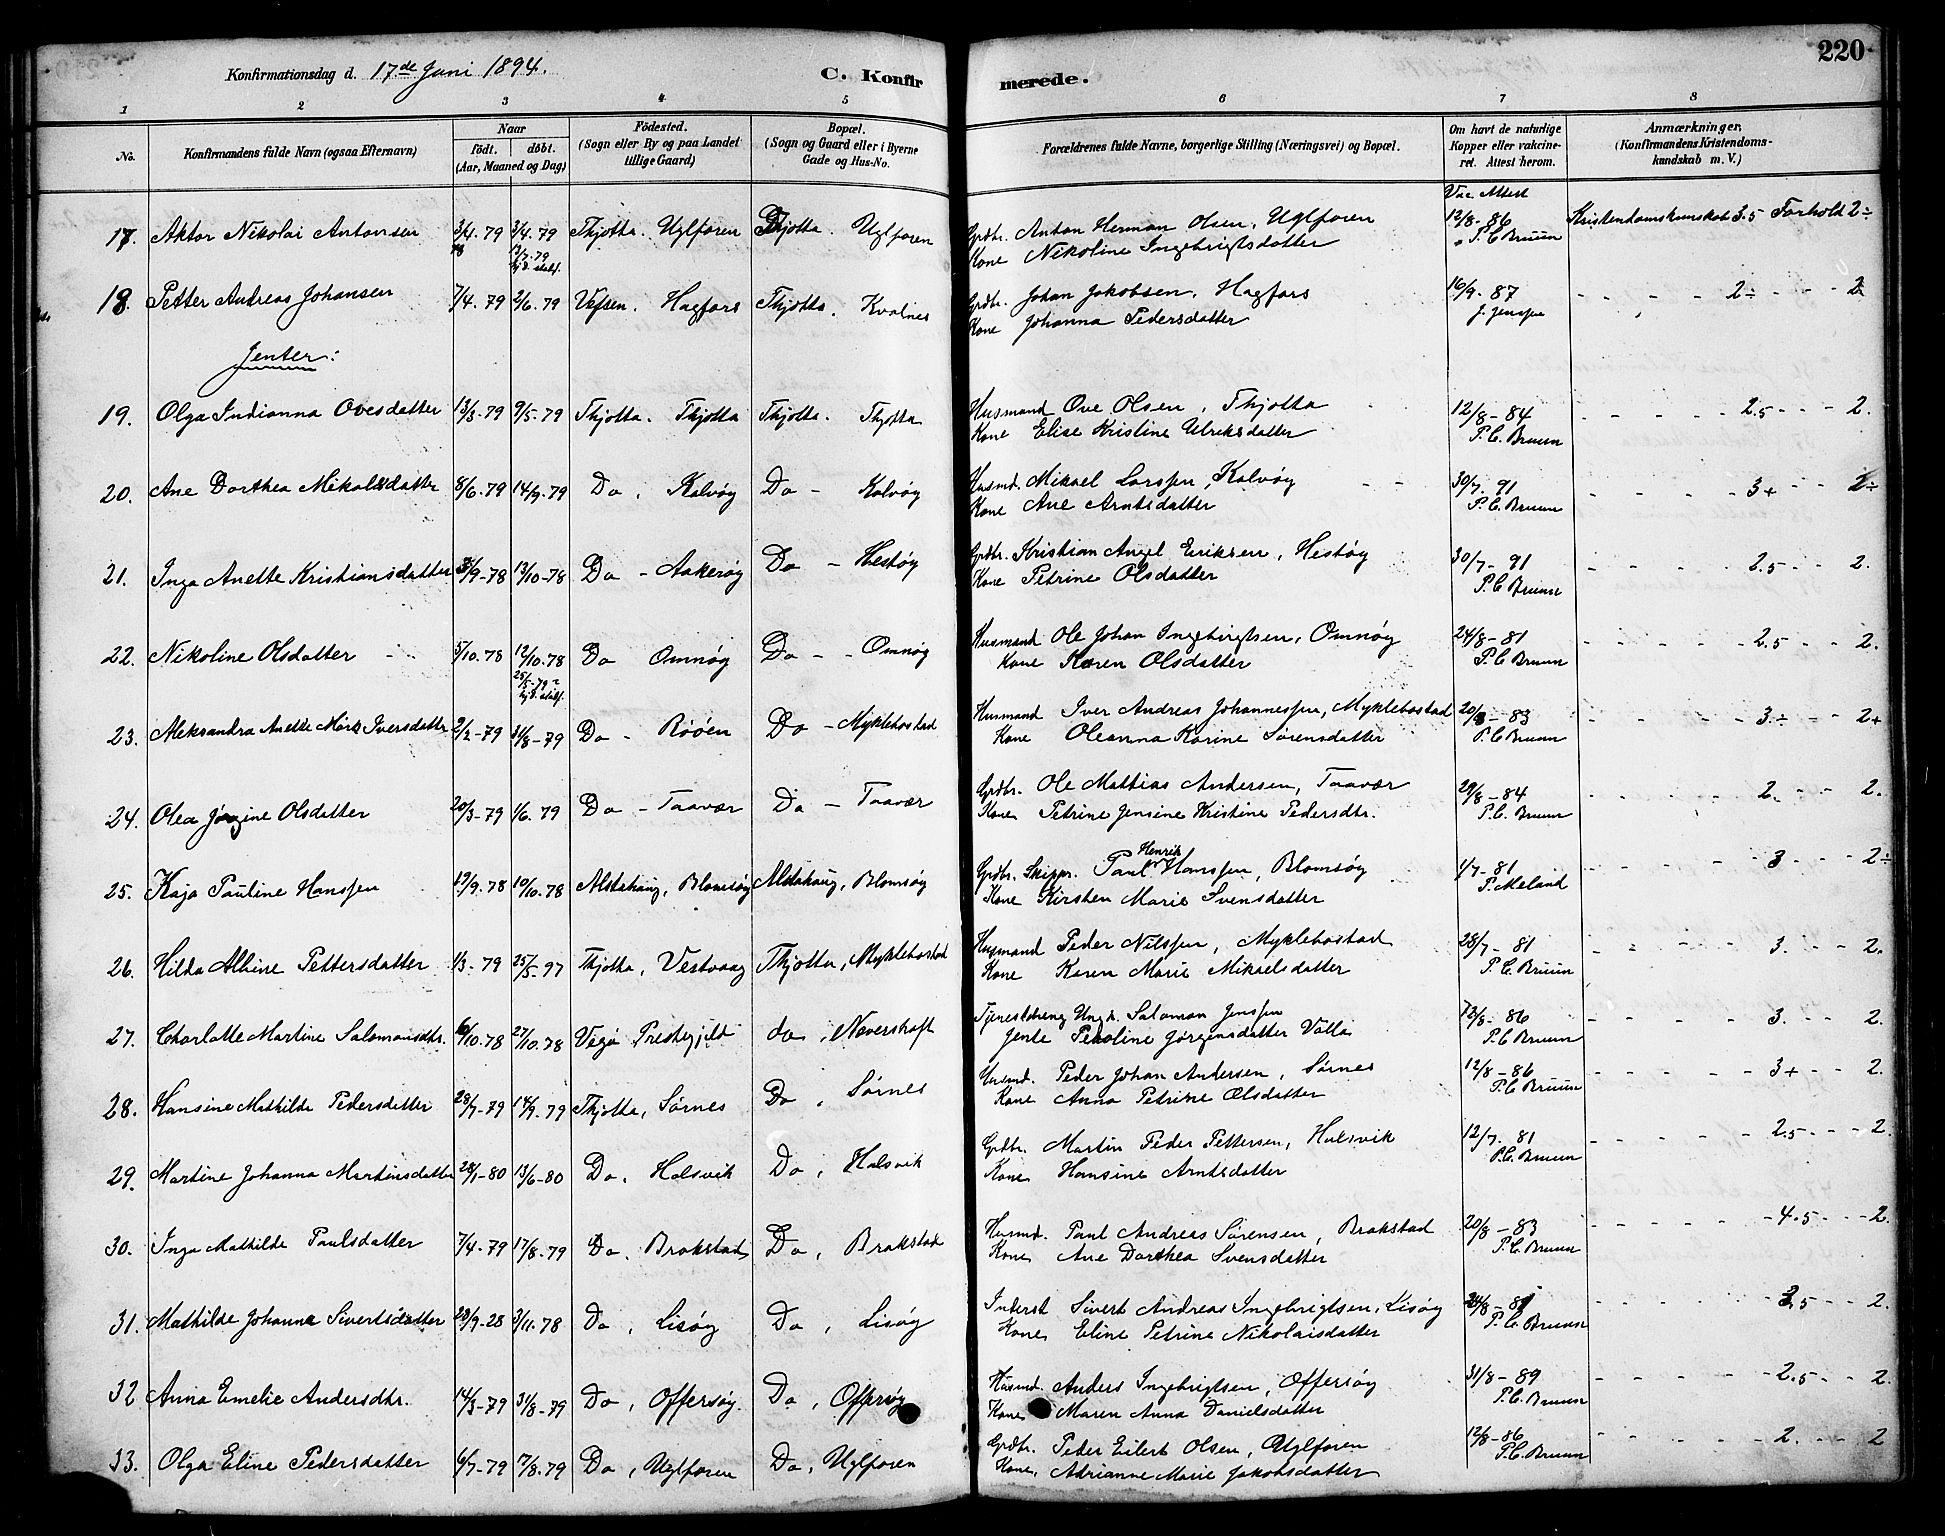 220
Konfirmationsdag d. 17de Juni 1894. C. Konfirmerede.
1 2 3 4 5 6 7 8
No. Konfirmandens fulde Navn (ogsaa Efternavn) Naar født. døbt. (Aar, Maaned og Dag) Fødested. (Sogn eller By og paa Landet tillige Gaard) Bopæl. (Sogn og Gaard eller i Byerne Gade og Hus-No. Forældrenes fulde Navne, borgerlige Stilling (Næringsvei) og Bopæl. Om havt de naturlige Kopper eller vakcineret. Attest herom. Anmærkninger. (Konfirmandens Kristendomskundskab m. V.)
Vac. Attest
17. Aktor Nikolai Antonsen 3/4 79 Thjøtta. Uglforen Thjøtta. Uglforen Grdbr. Anton Herman Olsen, Uglforen 12/8-86 Kristendomskunskab 3.5 Forhold 2÷
Kone Nikoline Ingebrigtsdatter P. C Bruun
18. Petter Andreas Johansen 7/4 79 2/6. 79 Vefsen. Hagfors Thjøtta. Kvalnes Grdbr. Johan Jakobsen, Hagfors 16/9-87 2÷ 2
Kone Johanna Pedersdatter J. Jenssen
Jenter:
19. Olga Indianna Ovesdatter 13/3-79 9/5-79 Thjøtta. Thjøtta Thjøtta. Thjøtta Husmand Ove Olsen, Thjøtta 12/8-84 2.5 2.
Kone Elise Kristine Ulriksdatter P. C. Bruun
20. Ane Dorthea Mikalsdatter 8/6.79 14/9-79 Do, Kalvøy Do - Kalvøy Husmd. Mikael Larssen, Kalvøy 30/7-91 3+ 2÷
Kone Ane Arntsdatter P. C. Bruun
21. Inga Anette Kristiansdatter 3/9-78 13/10-78 Do - Aakerøy Do - Hestøy Grdbr. Kristian Angel Eriksen, Hestøy 30/7-91 2.5 2.
Kone Petrine Olsdatter P. C Bruun
22. Nikoline Olsdatter 5/10.78 12/10.78 Do Omnøy Do - Omnøy Husmand Ole Johan Ingebrigtsen, Omnøy 24/8-81 2.5 2.
Kone Karen Olsdatter P. C. Bruun
23. Aleksandra Anette Marie Iversdatter 2/2-79 31/8-79 Do - Røøen Do - Myklebostad Husmand Iver Andreas Johannessen, Myklebostad 20/8-83 3÷ 2+
Kone Oleanna Karine Sørensdatter P. C Bruun
24. Olea Jørgine Olsdatter 20/3-79 1/6.79 Do - Taavær Do - Taavær Grdbr. Ole Mathias Andersen, Taavær 29/8-84 2. 2.
Kone Petrine Jensine Kristine Pedersdtr. P. C. Bruun
25. Kaja Pauline Hanssen 19/9.78 19/10.78 Alstahaug, Blomsøy Alstahaug, Blomsøy Grdbr. Skippr. Paul Henrik Hanssen, Blomsøy 4/7-81 3 2÷
Kone Kirsten Marie Svensdatter P. Meland
26. Hilda Albine Pettersdatter 1/3-79 25/5-97 Thjøtta, Vestvaag Thjøtta, Myklebostad Husmand Peder Nilssen, Myklebostad 28/7-81 3. 2.
Kone Karen Marie Mikaelsdatter P. C. Bruun
27. Charlotte Martine Salomonsdtr. 6/10.78 27/10.78 Vega Prestegjeld do, Neverskaft Tjenestdreng Ungk. Salomon Jenssen 12/8-86 3. 2.
Jente Petoline Jørgensdatter Valla P. C Bruun
28. Hansine Mathilde Pedersdatter 23/7-79 14/9.79 Thjøtta, Sørnes Do, Sørnes Husmd. Peder Johan Andersen, Sørnes 12/8-86 3+ 2.
Kone Anna Petrine Olsdatter P. C Bruun
29. Martine Johanna Martinsdatter 28/1-80 13/6-80 Do. Halsvik Do, Halsvik Grdbr. Martin Peder Pettersen, Halsvik 12/7.81 2.5 2.
Kone Hansine Arntsdatter P. C. Bruun
30. Inga Mathilde Paulsdatter 7/4-79 17/8.79 Do. Brakstad Do, Brakstad Husmd. Paul Andreas Sørensen, Brakstad 20/8-83 4.5 2.
Kone Ane Dorthea Svensdatter P. C. Bruun
31. Mathilde Johanne Sivertsdatter 28/9-28 3/11.78 Do, Lisøy Do, Lisøy Inderst Sivert Andreas Ingebrigtsen, Lisøy 24/8-81 3.5 2.
Kone Eline Petrine Nikolaisdatter P. C. Bruun
32 Anna Emelie Andersdtr. 14/3-79 31/8-79 Do, Offersøy. Do, Offersøy Husmd. Anders Ingebrigtsen, Offersøy 31/8-89 2.5 2.
Kone Maren Anna Danielsdatter P. C. Bruun
33. Olga Eline Pedersdatter 6/7-79 17/8.79 Do, Uglforen Do, Uglforen Grdbr. Peder Eilert Olsen, Uglforen 12/8-86 2. 2
Kone, Adrianne Marie Jakobsdatter P. C. Bruun